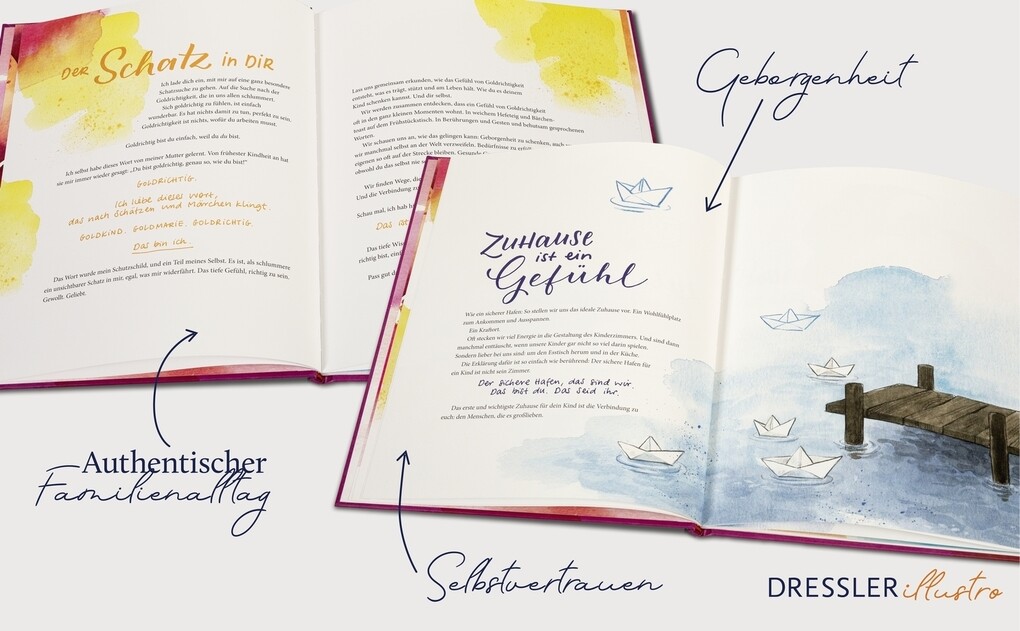 DER Schatz IN DIR
Ich lade dich ein, mit mir auf eine ganz besondere
Schatzsuche zu gehen. Auf die Suche nach der
Goldrichtigkeit, die in uns allen schlummert.
Sich goldrichtig zu fühlen, ist einfach
wunderbar. Es hat nichts damit zu tun, perfekt zu sein.
Goldrichtigkeit ist nichts, wofür du arbeiten musst.
Goldrichtig bist du einfach, weil du du bist.
Ich selbst habe dieses Wort von meiner Mutter gelernt. Von frühester Kindheit an hat
sie mir immer wieder gesagt: „Du bist goldrichtig, genau so, wie du bist!“
GOLDRICHTIG.
Ich liebe dieses Wort,
das nach Schätzen und Märchen klingt.
GOLDKIND. GOLDMARIE. GOLDRICHTIG.
Das bin ich.
Das Wort wurde mein Schutzschild, und ein Teil meines Selbst. Es ist, als schlummere
ein unsichtbarer Schatz in mir, egal, was mir widerfährt. Das tiefe Gefühl, richtig zu sein.
Gewollt. Geliebt.
Lass uns gemeinsam erkunden, wie das Gefühl von Goldrichtigkeit
entsteht, was es trägt, stützt und am Leben hält. Wie du es deinem
Kind schenken kannst. Und dir selbst.
Wir werden zusammen entdecken, dass ein Gefühl von Goldrichtigkeit
oft in den ganz kleinen Momenten wohnt. In weichem Hefeteig und Bärchen-
toast auf dem Frühstückstisch. In Berührungen und Gesten und behutsam gesprochenen
Worten.
Wir schauen uns an, wie das gelingen kann: Geborgenheit zu schenken, auch
wir manchmal selbst an der Welt verzweifeln. Bedürfnisse zu
eigenen so oft auf der Strecke bleiben. Gesunde
obwohl du das selbst nie
Wir finden Wege, die
Und die Verbindung zu
Schau mal, ich hab
Das ist
Das tiefe
richtig bist,
Pass gut
Geborgenheit
ZUHAUSE
ist ein
Gefühl
Wie ein sicherer Hafen: So stellen wir uns das ideale Zuhause vor. Ein Wohlfühlplatz
zum Ankommen und Ausspannen.
Ein Kraftort.
Oft stecken wir viel Energie in die Gestaltung des Kinderzimmers. Und sind dann
manchmal enttäuscht, wenn unsere Kinder gar nicht so viel darin spielen.
Sondern lieber bei uns sind: um den Esstisch herum und in der Küche.
Die Erklärung dafür ist so einfach wie berührend: Der sichere Hafen für
ein Kind ist nicht sein Zimmer.
Der sichere Hafen, das sind wir.
Das bist du. Das seid ihr.
Das erste und wichtigste Zuhause für dein Kind ist die Verbindung zu
euch: den Menschen, die es großlieben.
Authentischer
Familienalltag
Selbstvertrauen
DRESSLER illustro